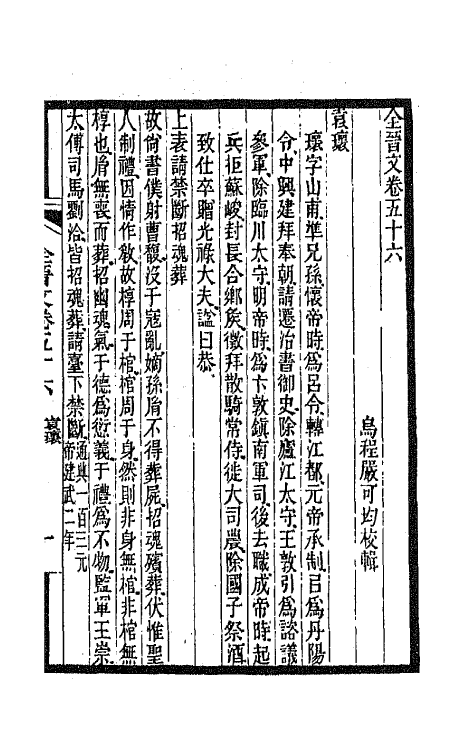 全晉文卷五十六
烏程嚴可均校輯
袁瓌
瓌字山甫準兄孫懷帝時爲呂令轉江都元帝承制㠯爲丹陽
令中興建拜奉朝請遷治書御史除廬江太守王敦引爲諮議
參軍除臨川太守明帝時爲卞敦鎮南軍司後去職成帝時起
兵拒蘇峻封長合鄉矦徵拜散騎常侍徙大司農除國子祭酒
致仕卒贈光祿大夫謚曰恭
上表請禁斷招魂葬
故尚書僕射曹馥沒于寇亂嫡孫胤不得葬屍招魂殯葬伏惟聖
人制禮因情作敎故椁周于棺棺周于身然則非身無棺非棺無
椁也胤無喪而葬招幽魂氣于德爲愆義于禮爲不物監軍王崇
太傅司馬劉洽皆招魂葬請臺下禁斷通典一百三元
帝建武二年
全晉文卷五十六 袁瓌 一